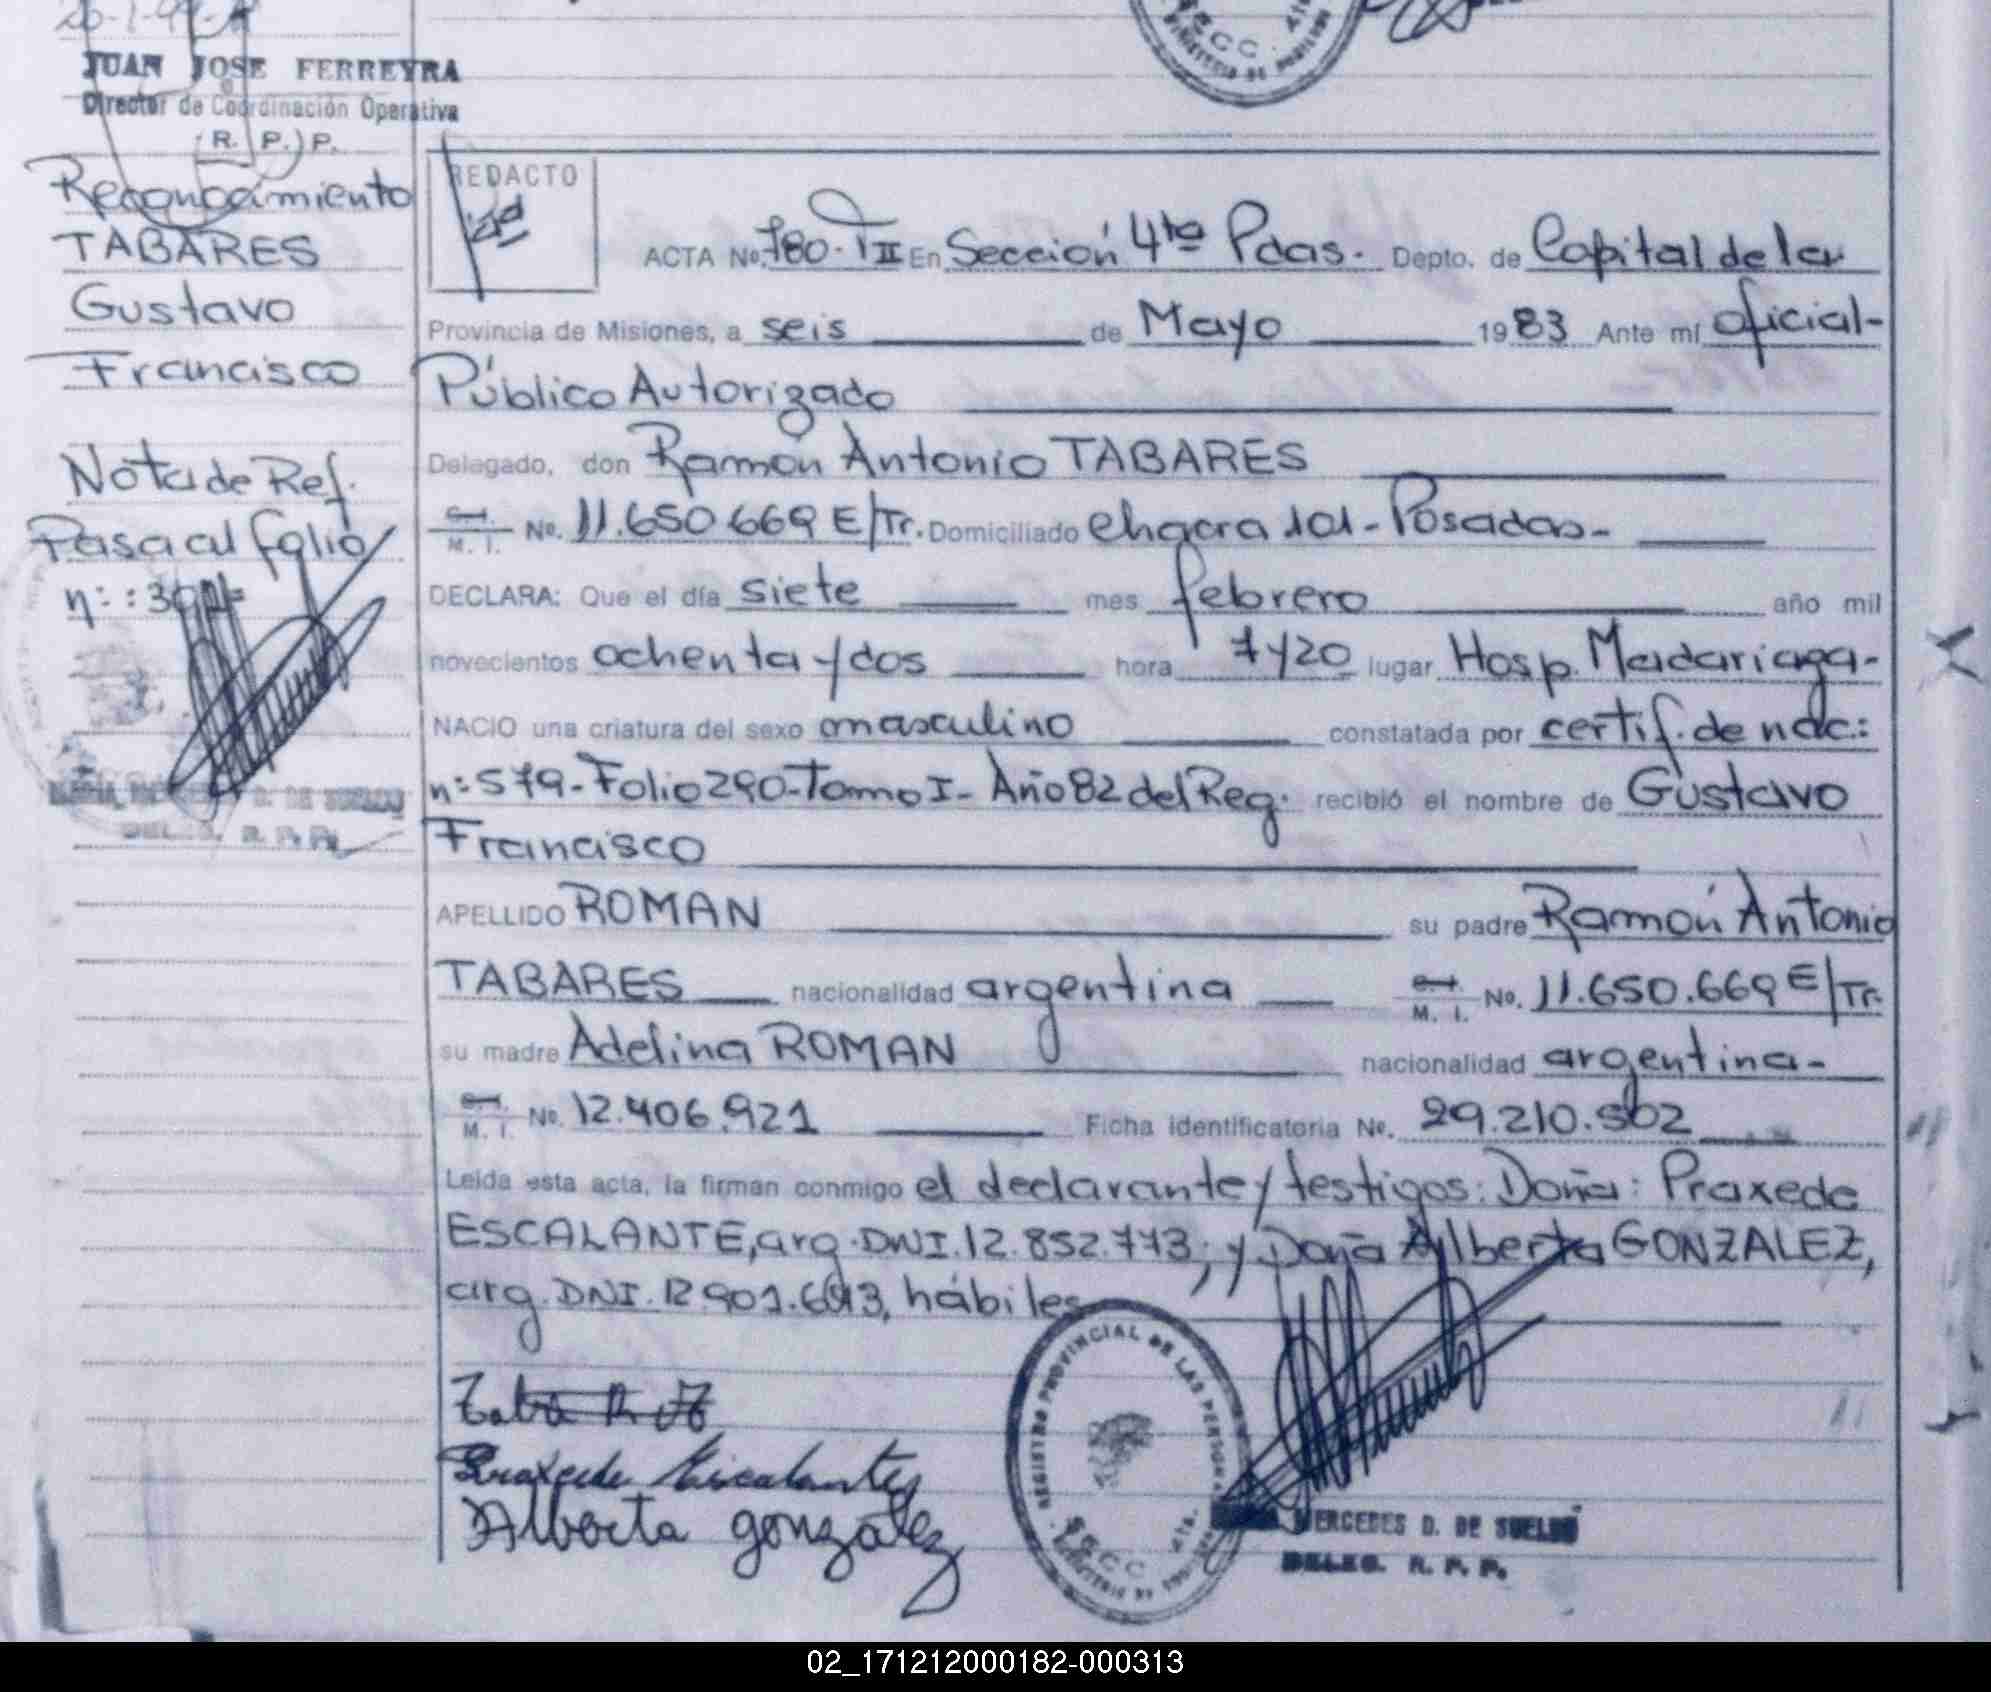 JUAN JOSE FERREYRA
Director de Coordinación Operativa
(R. P.) P.
Reconocimiento
TABARES
Gustavo
Francisco
Nota de Ref.
Pasa al folio
n::
DELEG. R. P. P.
REDACTO
ACTA No. 780-TII En Sección 4ta Pdas. Depto. de Capital de la
Provincia de Misiones, a seis de Mayo 1983 Ante mí oficial-
Público Autorizado
Delegado, don Ramón Antonio TABARES
C.I. M. I. No. 11.650.669 E/Tr. Domiciliado chacra 101-Posadas-
DECLARA: Que el día siete mes febrero año mil
novecientos ochenta y dos hora 7y20 lugar Hosp. Madariaga-
NACIO una criatura del sexo masculino constatada por certif. de nac:
n:579-Folio290-Tomo I- Año82 del Reg. recibió el nombre de Gustavo
Francisco
APELLIDO ROMAN su padre Ramón Antonio
TABARES nacionalidad argentina C.I. M. I. No. 11.650.669 E/Tr.
su madre Adelina ROMAN nacionalidad argentina-
C.I. M. I. No. 12.406.921 Ficha identificatoria No. 29.210.502
Leída esta acta, la firman conmigo el declarante y testigos: Doña: Praxede
ESCALANTE, arg. DNI. 12.852.773; y Doña Alberta GONZALEZ,
arg. DNI. 12.901. hábiles
Praxede Escalante
Alberta gonzalez
REGISTRO PROVINCIAL DE LAS PERSONAS
MERCEDES D. DE SUELDO
DELEG. R. P. P.
02_171212000182-000313